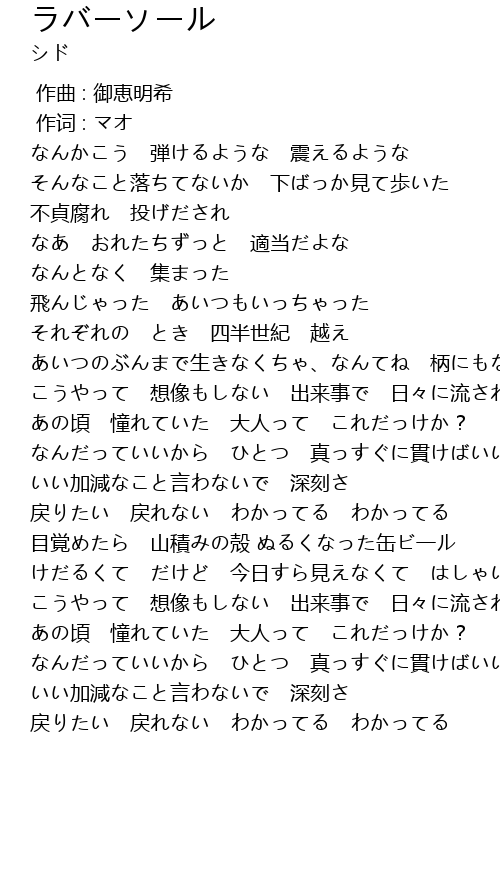 ラバーソール
シド
作曲 : 御恵明希
作词 : マオ
なんかこう　弾けるような　震えるような
そんなこと落ちてないか　下ばっか見て歩いた
不貞腐れ　投げだされ
なあ　おれたちずっと　適当だよな
なんとなく　集まった
飛んじゃった　あいつもいっちゃった
それぞれの　とき　四半世紀　越え
あいつのぶんまで生きなくちゃ、なんてね　柄にもな
こうやって　想像もしない　出来事で　日々に流され
あの頃　憧れていた　大人って　これだっけか？
なんだっていいから　ひとつ　真っすぐに貫けばいい
いい加減なこと言わないで　深刻さ
戻りたい　戻れない　わかってる　わかってる
目覚めたら　山積みの殻 ぬるくなった缶ビール
けだるくて　だけど　今日すら見えなくて　はしゃい
こうやって　想像もしない　出来事で　日々に流され
あの頃　憧れていた　大人って　これだっけか？
なんだっていいから　ひとつ　真っすぐに貫けばいい
いい加減なこと言わないで　深刻さ
戻りたい　戻れない　わかってる　わかってる